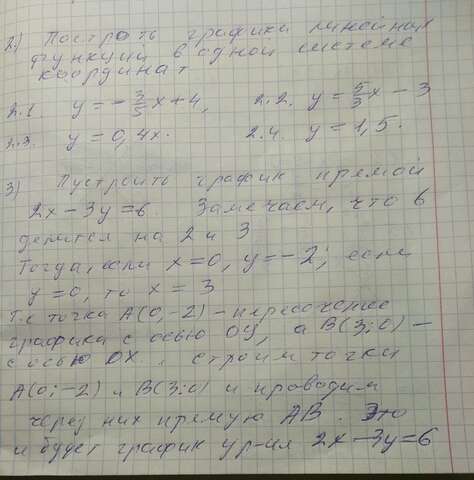 2.) Построть графики линейных
функций в одной системе
координат
2.1. y = -3/5 x + 4, 2.2. y = 5/3 x - 3
2.3. y = 0,4x. 2.4. y = 1,5.
3) Пустроить график прямой
2x - 3y = 6. Замечаем, что 6
делится на 2 и 3
Тогда, если x = 0, y = -2; если
y = 0, то x = 3
Т.е точка A(0,-2) - пересечение
графика с осью OY, а B(3;0) -
с осью OX. , строим точки
A(0;-2) и B(3;0) и проводим
через них прямую AB. Это
и будет график ур-ия 2x - 3y = 6